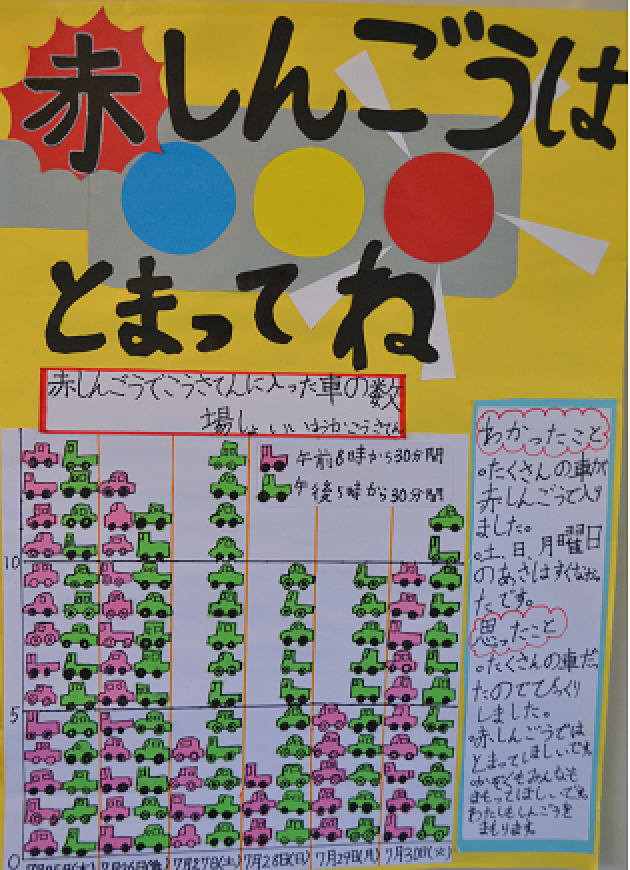 赤しんごうは
とまってね
赤しんごうでこうさてんに入った車の数
場しょ いいはらかこうさてん
午前8時から30分間
午後5時から30分間
10
5
0
7月25日(木) 7月26日(金) 7月27日(土) 7月28日(日) 7月29日(月) 7月30日(火)
わかったこと
。たくさんの車が
赤しんごうで入り
ました。
。土、日、月曜日
のあさはすくなかっ
たです。
思ったこと
。たくさんの車だっ
たのでびっくり
しました。
。赤しんごうでは
とまってほしいです。
かぞくもみんなも
まもってほしいです。
わたしもしんごうを
まもります。